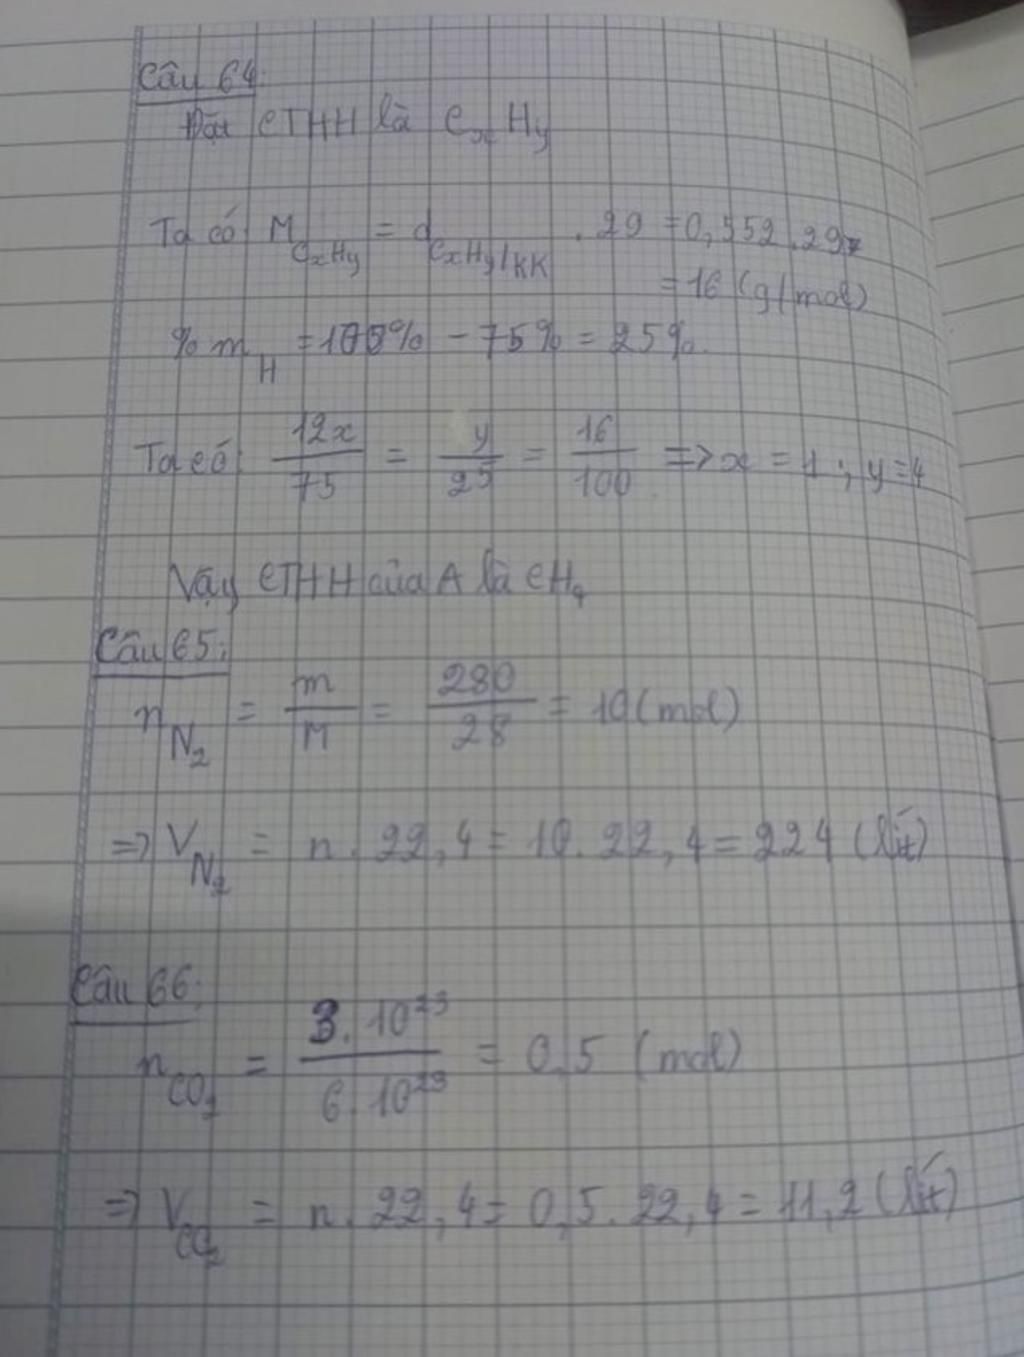 Câu 64:
Đặt CTHH là CxHy
Ta có: M CxHy = d CxHy/KK . 29 = 0,552 . 29
= 16 (g/mol)
% m H = 100% - 75% = 25%.
Ta có: 12x/75 = y/25 = 16/100 => x = 1 ; y = 4
Vậy CTHH của A là CH4
Câu 65:
n N2 = m/M = 280/28 = 10 (mol)
=> V N2 = n . 22,4 = 10 . 22,4 = 224 (lít)
Câu 66:
n CO2 = 3.10^23/6.10^23 = 0,5 (mol)
=> V CO2 = n . 22,4 = 0,5 . 22,4 = 11,2 (lít)